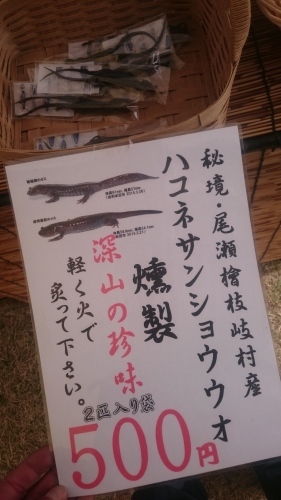 秘境・尾瀬檜枝岐村産
ハコネサンショウウオ
燻製
深山の珍味
軽く火で
炙って下さい。
2匹入り袋
500円